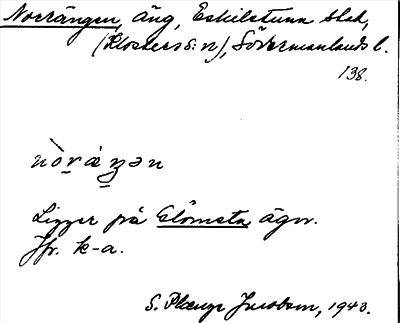 Norrängen, äng, Eskilstuna stad,
(Klosters s:n), Södermanlands l.
138.
Ligger på Glömsta ägor.
Jfr. k-a.
S. Plænge Jacobson, 1943.